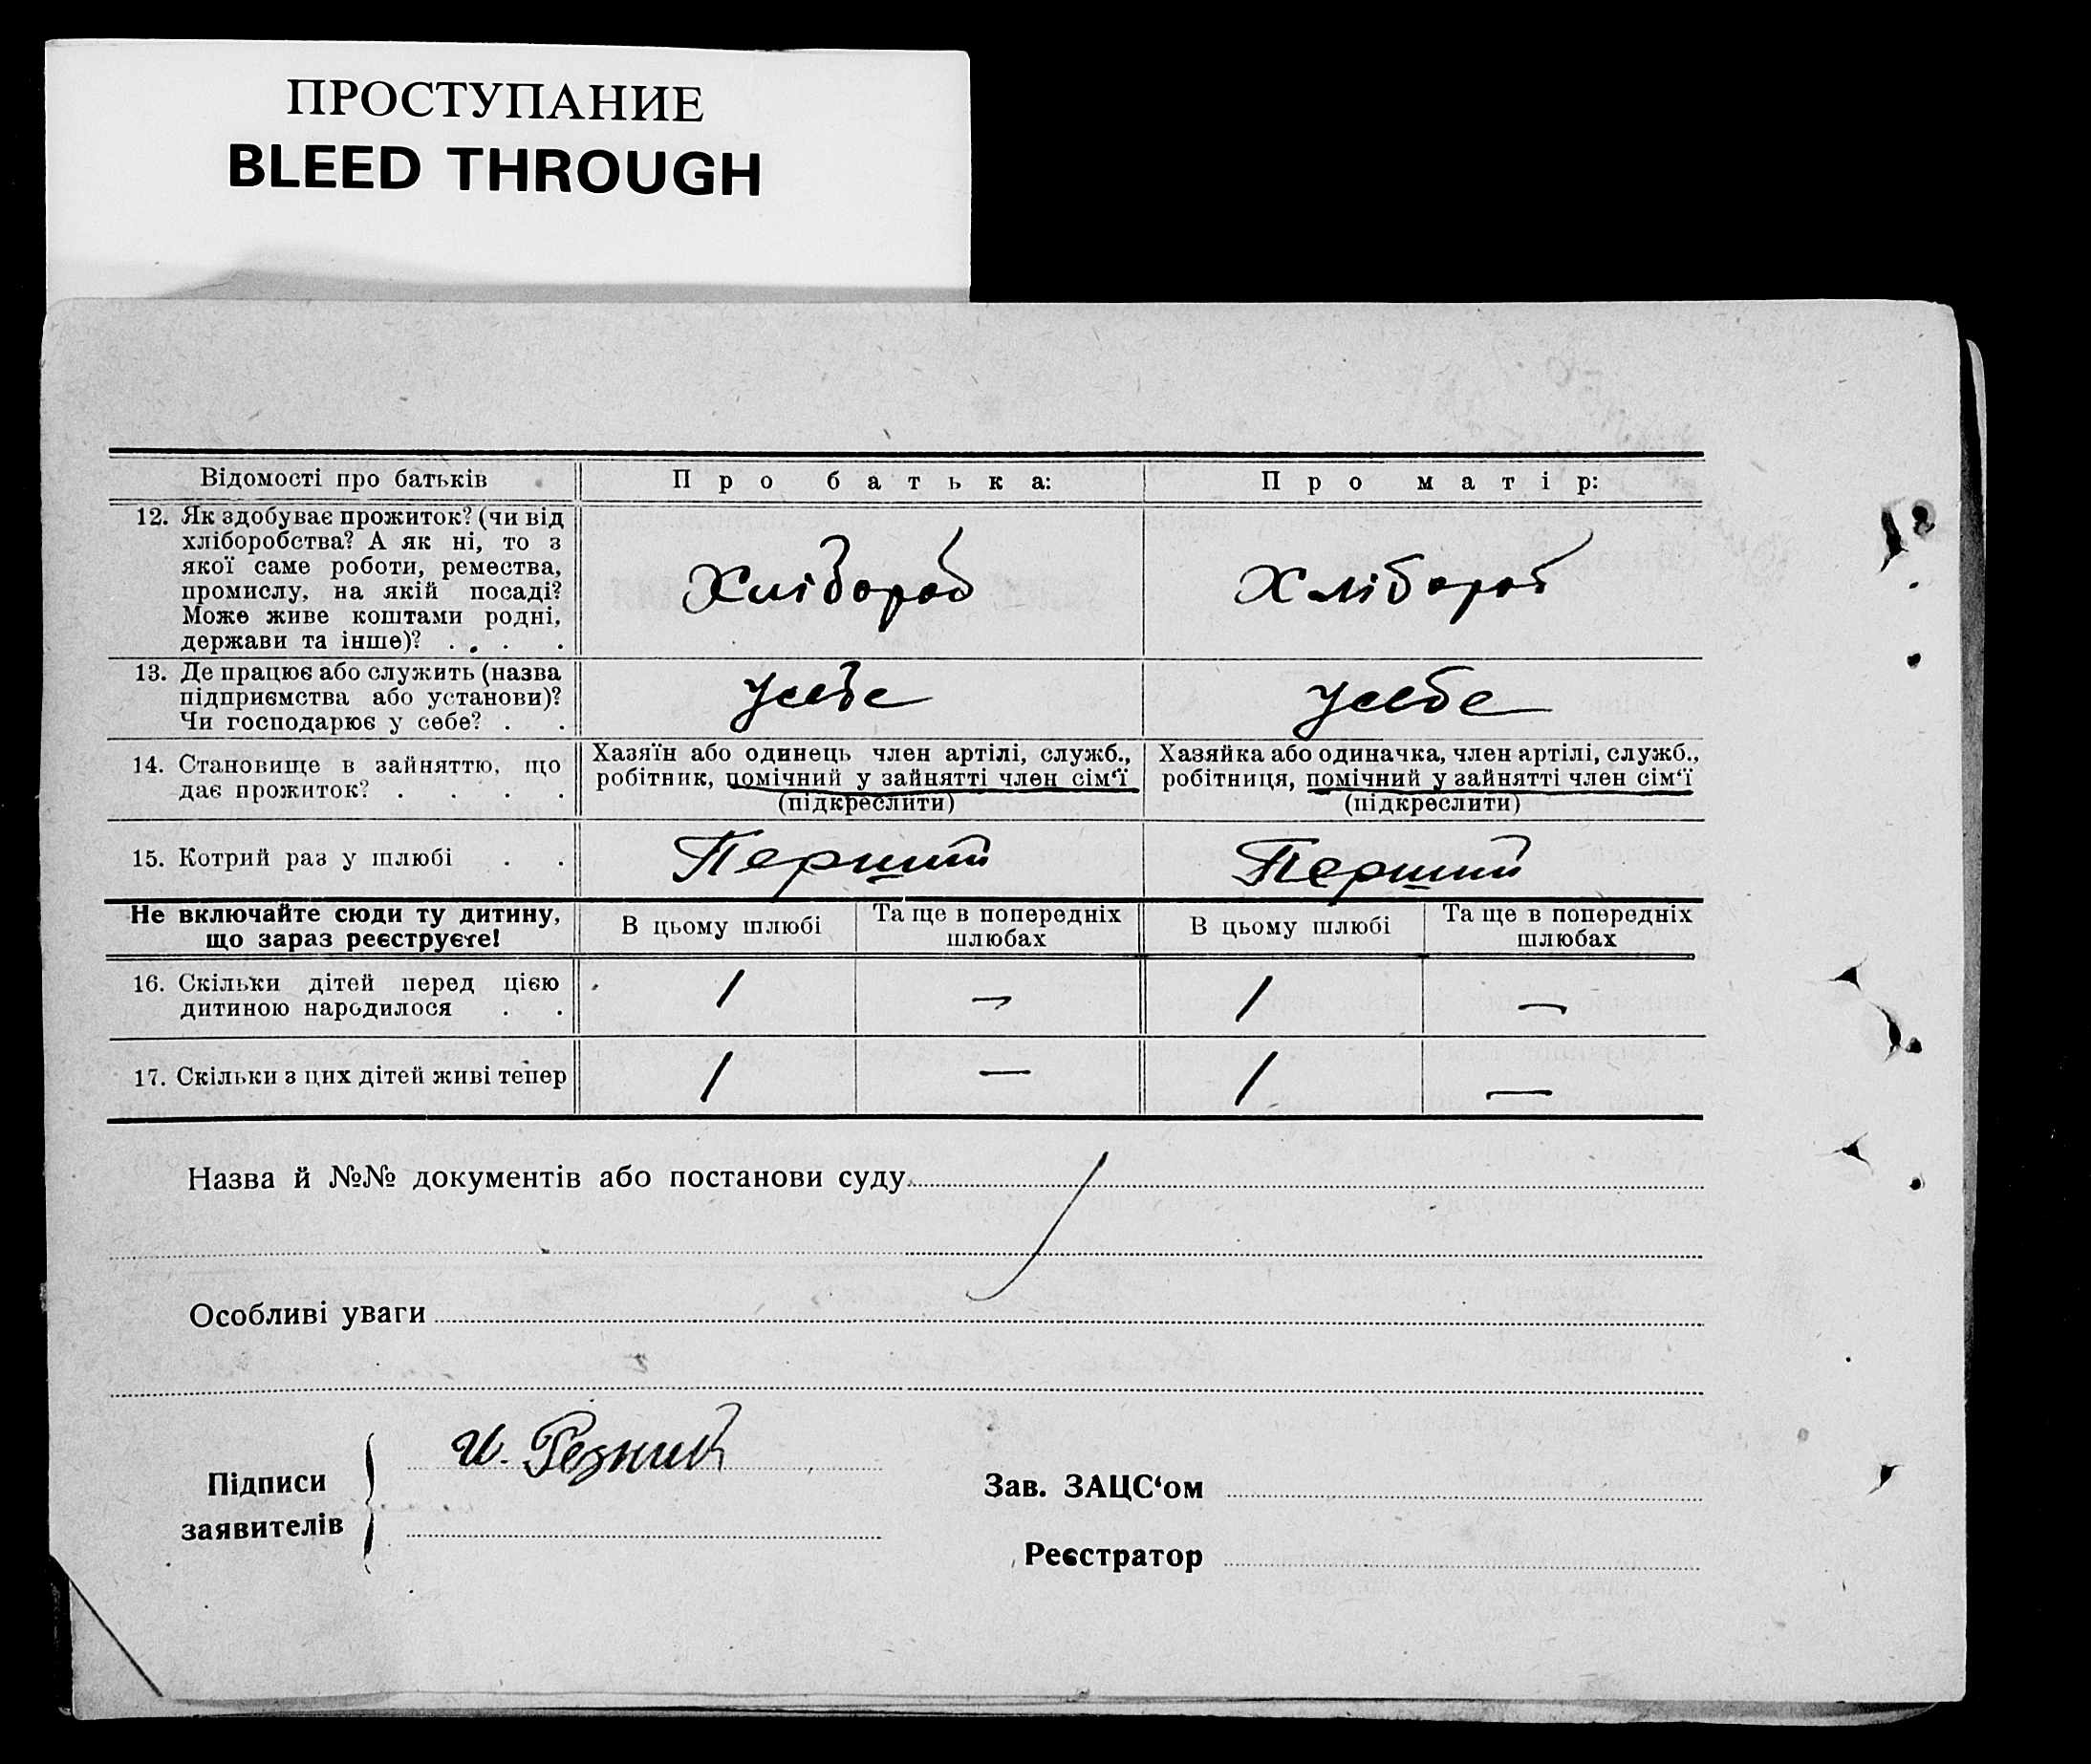 ПРОСТУПАНИЕ
BLEED THROUGH
Відомості про батьків
Про батька:
Про матір:
12. Як здобуває прожиток? (чи від
хліборобства? А як ні, то з
якої саме роботи, ремества,
промислу, на якій посаді?
Може живе коштами родні,
держави та інше)? . . . .
Хлібороб
Хлібороб
13. Де працює або служить (назва
підприємства або установи)?
Чи господарює у себе? . .
усебе
усебе
14. Становище в зайняттю, що
дає прожиток? . . . .
Хазяїн або одинець член артілі, служб.,
робітник, помічний у зайнятті член сім‘ї
(підкреслити)
Хазяйка або одиначка, член артілі, служб.,
робітниця, помічний у зайнятті член сім‘ї
(підкреслити)
15. Котрий раз у шлюбі . .
Перший
Перший
Не включайте сюди ту дитину,
що зараз реєструєте!
В цьому шлюбі
Та ще в попередніх
шлюбах
В цьому шлюбі
Та ще в попередніх
шлюбах
16. Скільки дітей перед цією
дитиною народилося . .
1
—
1
—
17. Скільки з цих дітей живі тепер
1
—
1
—
Назва й №№ документів або постанови суду
Особливі уваги
Підписи
заявителів
И. Резник
Зав. ЗАЦС‘ом
Реєстратор